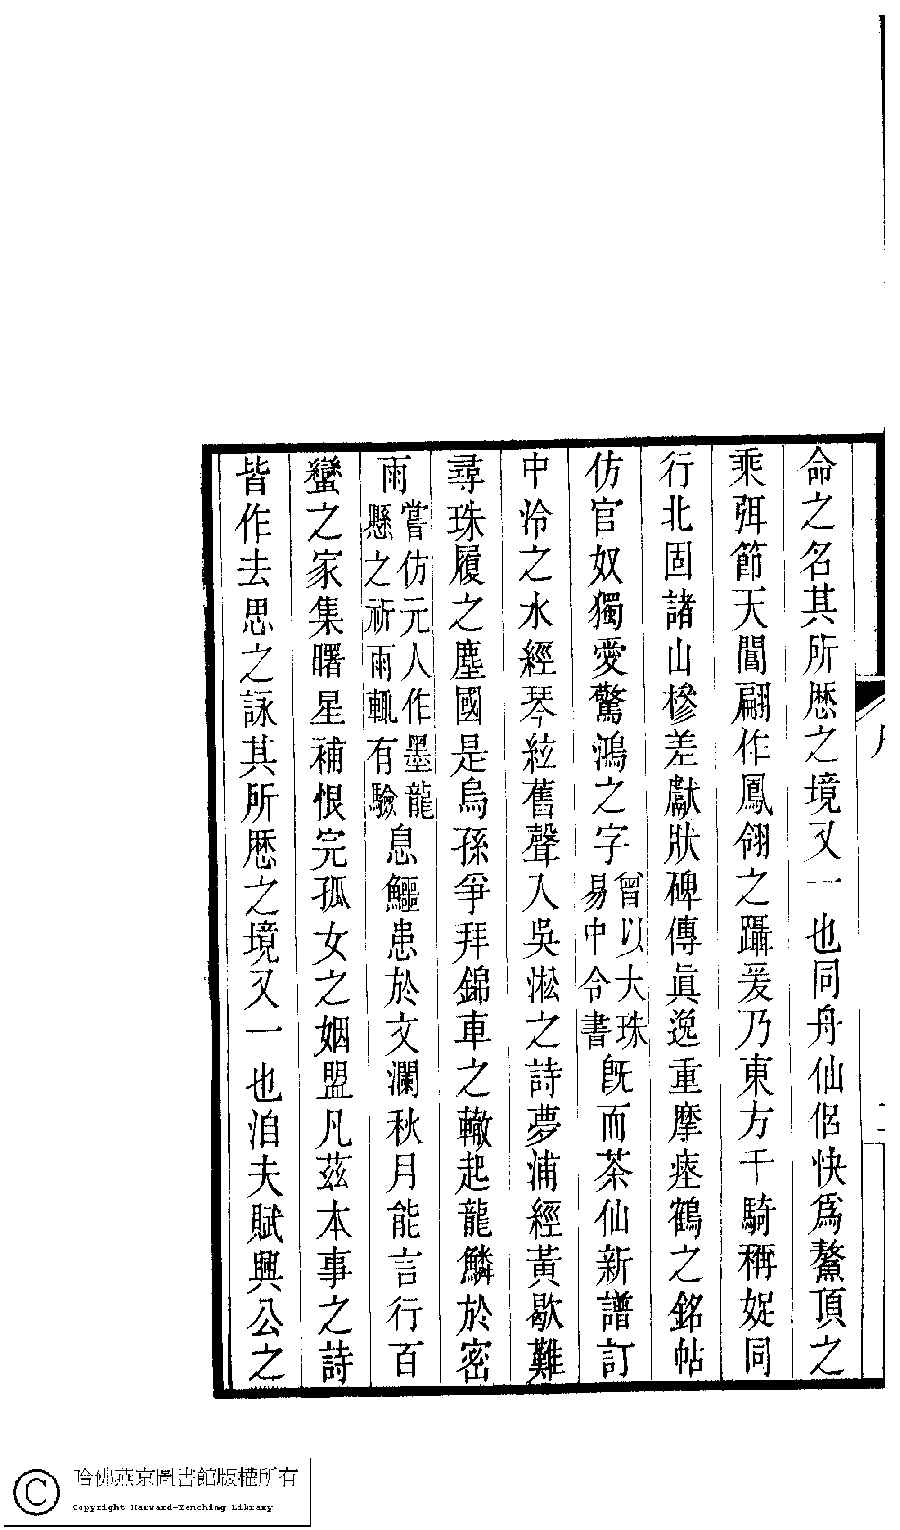 命之名其所歷之境又一也同舟仙侶快爲鰲頂之
乘弭節天閶翩作鳳翎之躡爰乃東方千騎稱娖同
行北固諸山槮差獻狀碑傳眞逸重摩瘞鶴之銘帖
仿官奴獨愛驚鴻之字曾以大珠易中令書既而茶仙新譜訂
中泠之水經琴絃舊聲入吳淞之詩夢浦經黃歇難
尋珠履之塵國是烏孫爭拜錦車之轍起龍鱗於密
雨嘗仿元人作墨龍懸之祈雨輒有驗息鱷患於文瀾秋月能言行百
蠻之家集曙星補恨完孤女之姻盟凡茲本事之詩
皆作去思之詠其所歷之境又一也洎夫賦興公之
哈佛燕京圖書館版權所有
Copyright Harvard-Yenching Library